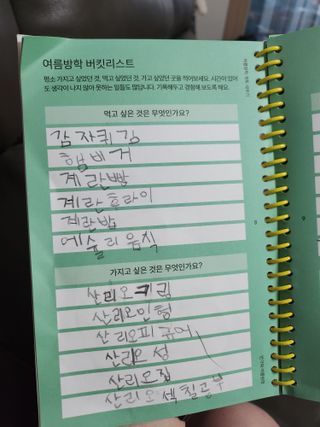 여름방학 버킷리스트
평소 가지고 싶었던 것, 먹고 싶었던 것, 가고 싶었던 곳을 적어보세요. 시간이 있어
도 생각이 나지 않아 못하는 일들도 많답니다. 기록해두고 경험해 보도록 해요.
먹고 싶은 것은 무엇인가요?
감자튀김
햄버거
계란빵
계란후라이
계란밥
에슐리음식
가지고 싶은 것은 무엇인가요?
산리오키링
산리오인형
산리오피규어
산리오성
산리오집
산리오색칠공부